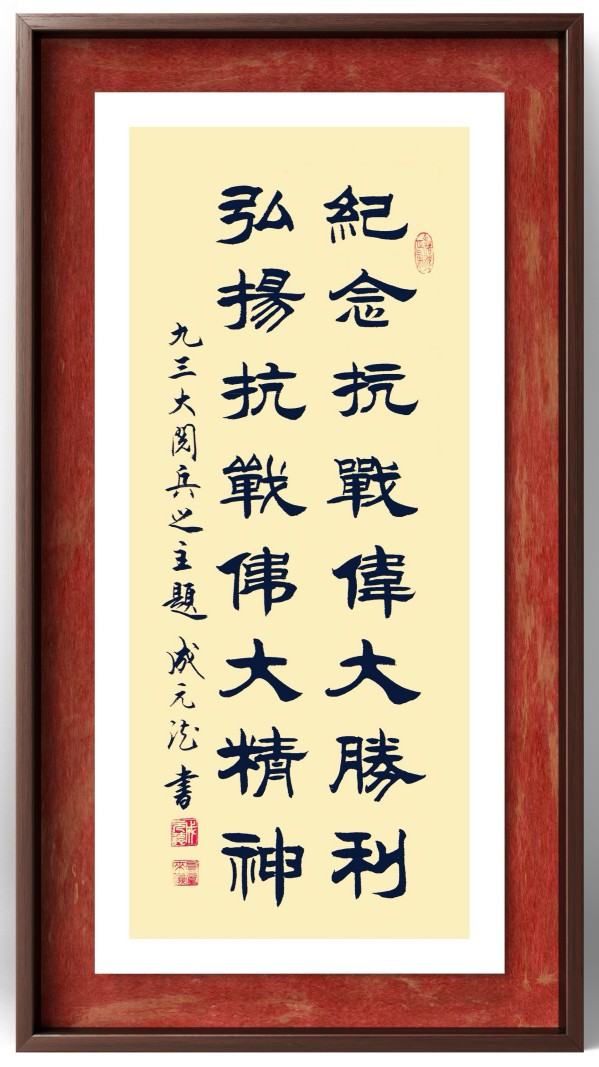 紀念抗戰偉大勝利
弘揚抗戰偉大精神
九三大閱兵之主題 成元法 書